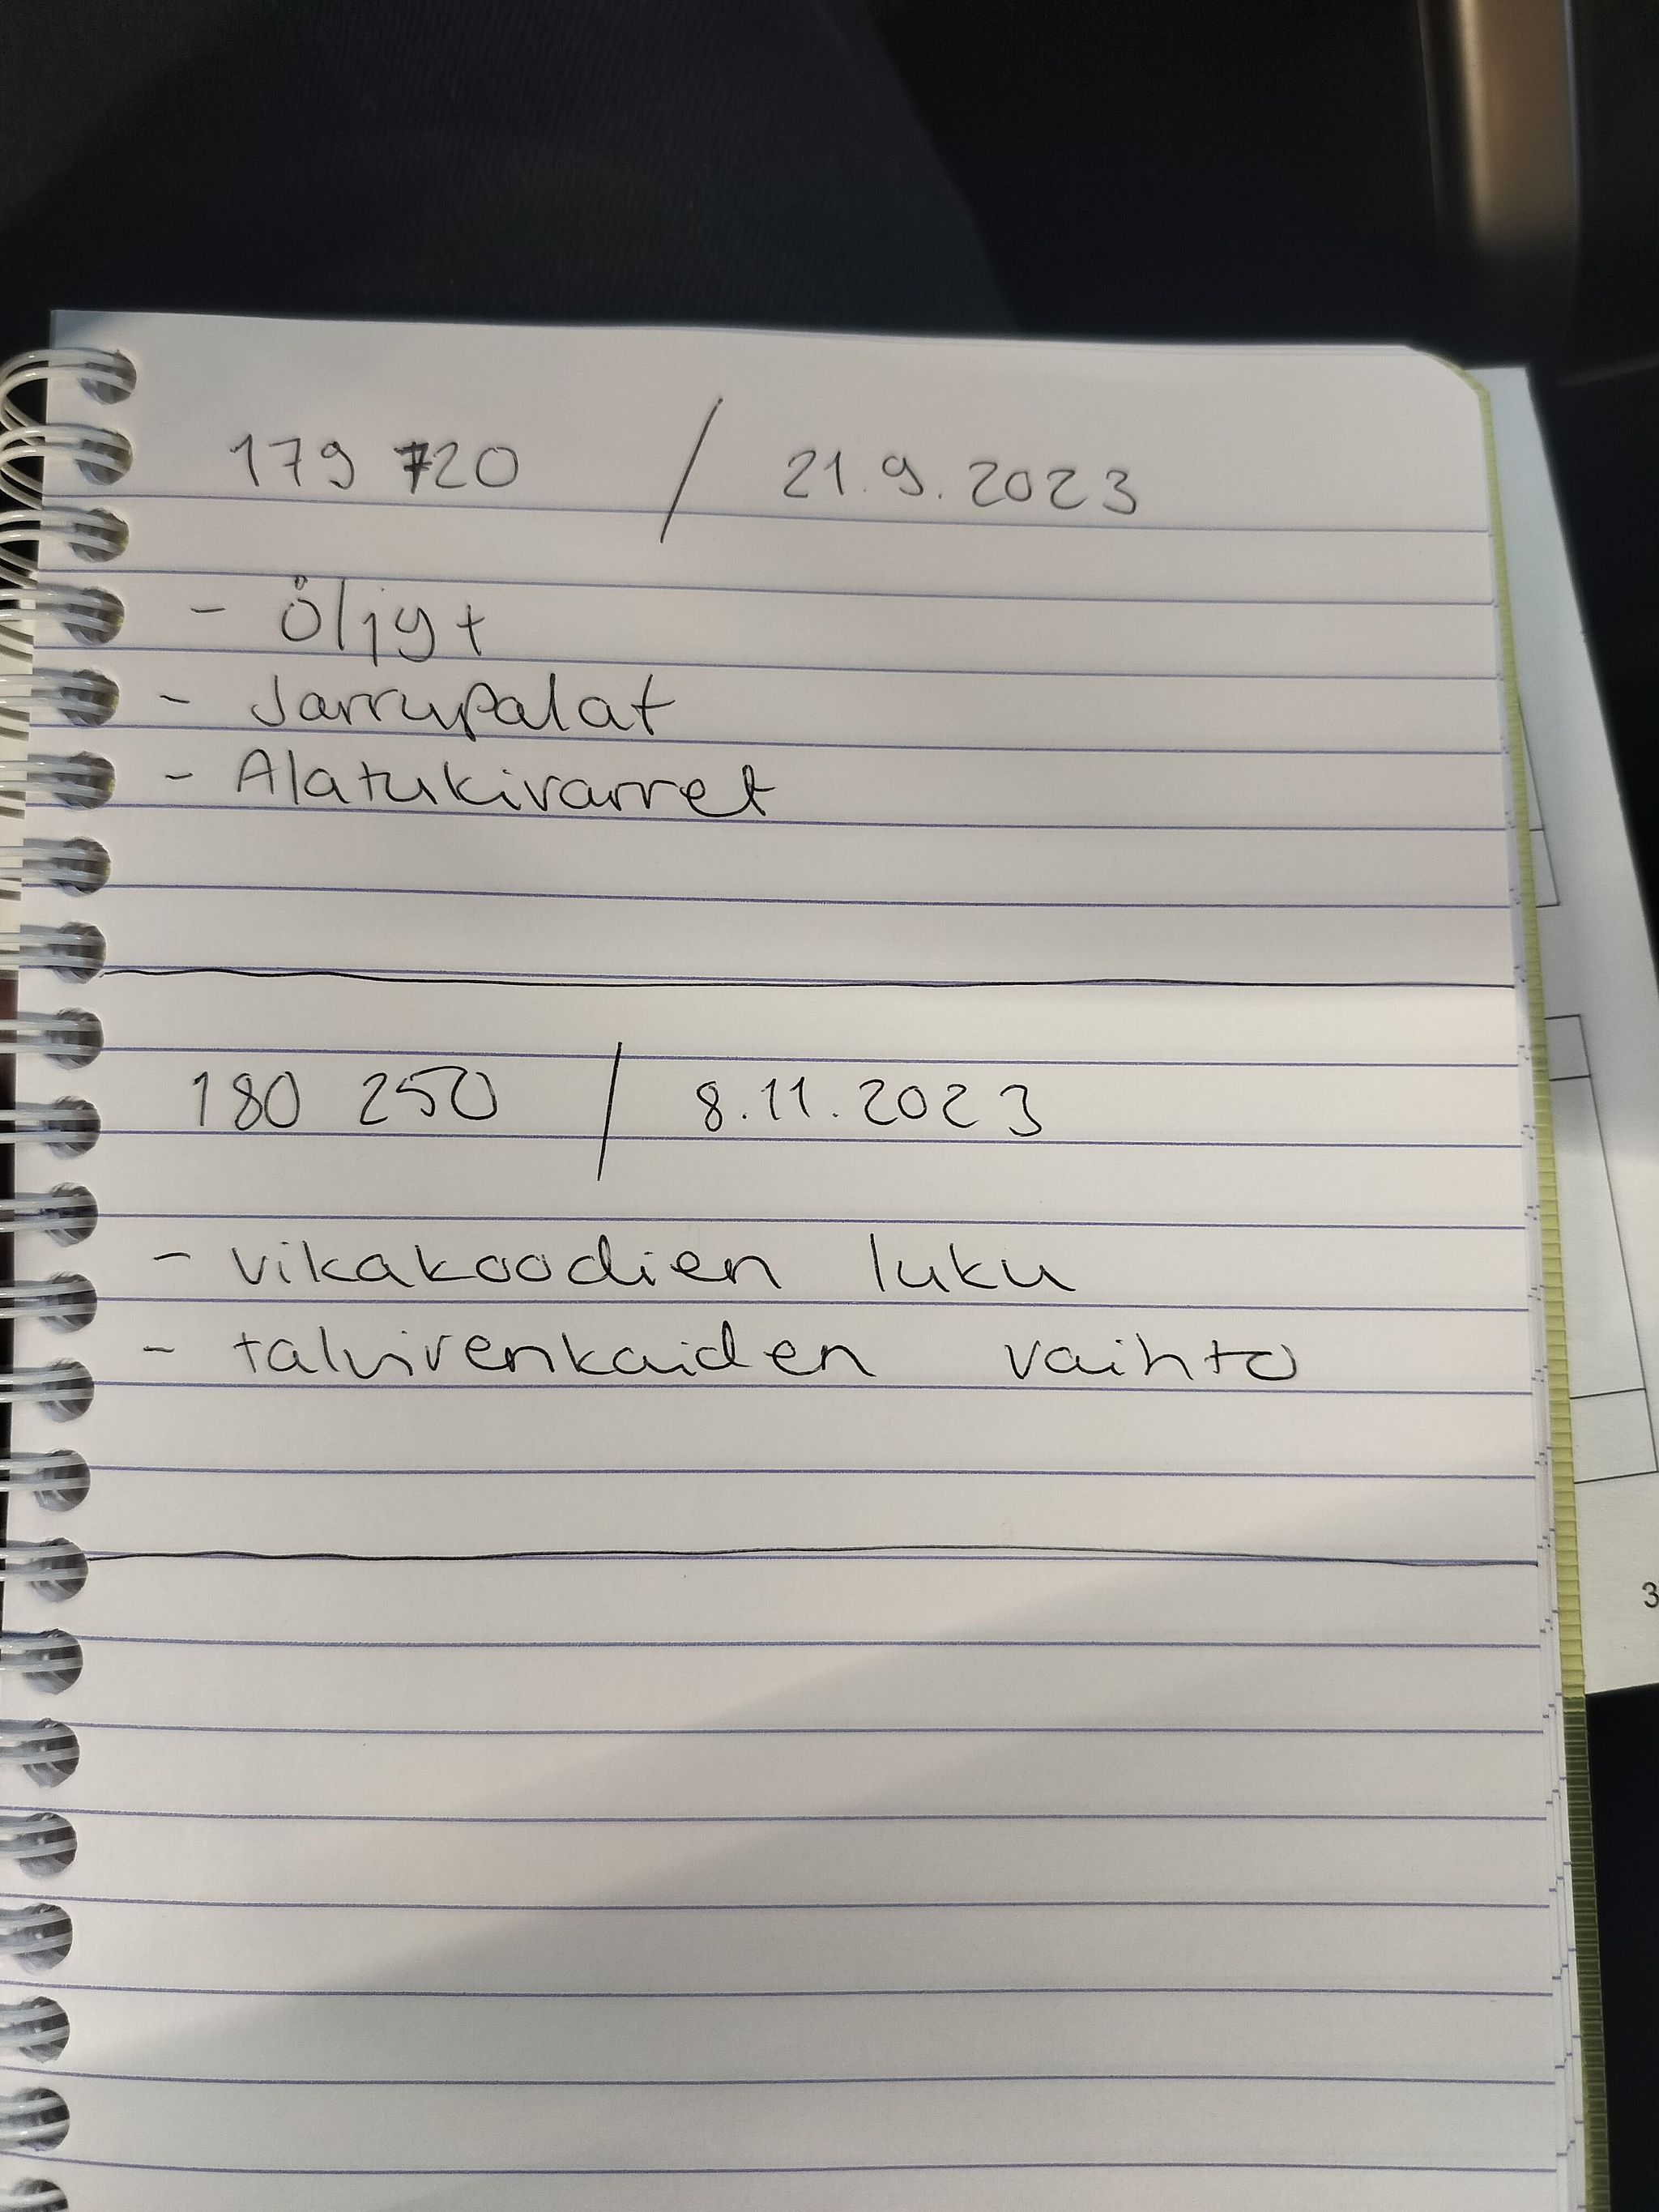 179 720 / 21.9.2023
- Öljyt
- Jarrupalat
- Alatukivarret
180 250 / 8.11.2023
- vikakoodien luku
- talvirenkaiden vaihto
3